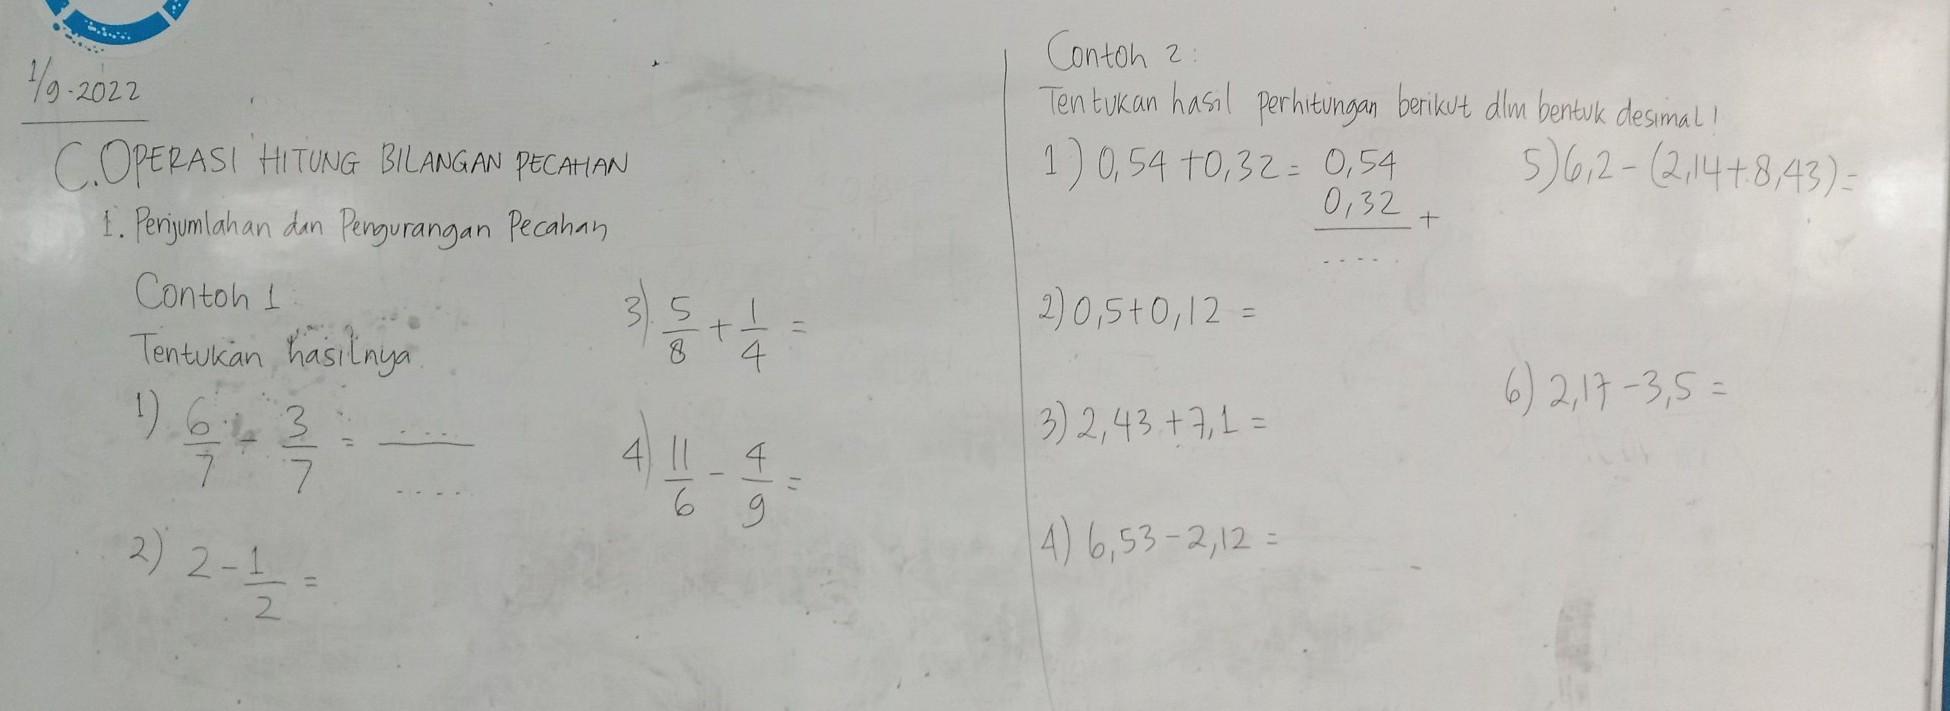 1/9-2022
C. OPERASI HITUNG BILANGAN PECAHAN
1. Penjumlahan dan Pengurangan Pecahan
Contoh 1
Tentukan hasilnya.
1) 6/7 - 3/7 = ..... / .....
2) 2 - 1/2 =
3) 5/8 + 1/4 =
4) 11/6 - 4/9 =
Contoh 2:
Tentukan hasil perhitungan berikut dlm bentuk desimal!
1) 0,54 + 0,32 = 0,54
0,32 +
.....
2) 0,5 + 0,12 =
3) 2,43 + 7,1 =
4) 6,53 - 2,12 =
5) 6,2 - (2,14 + 8,43) =
6) 2,17 - 3,5 =